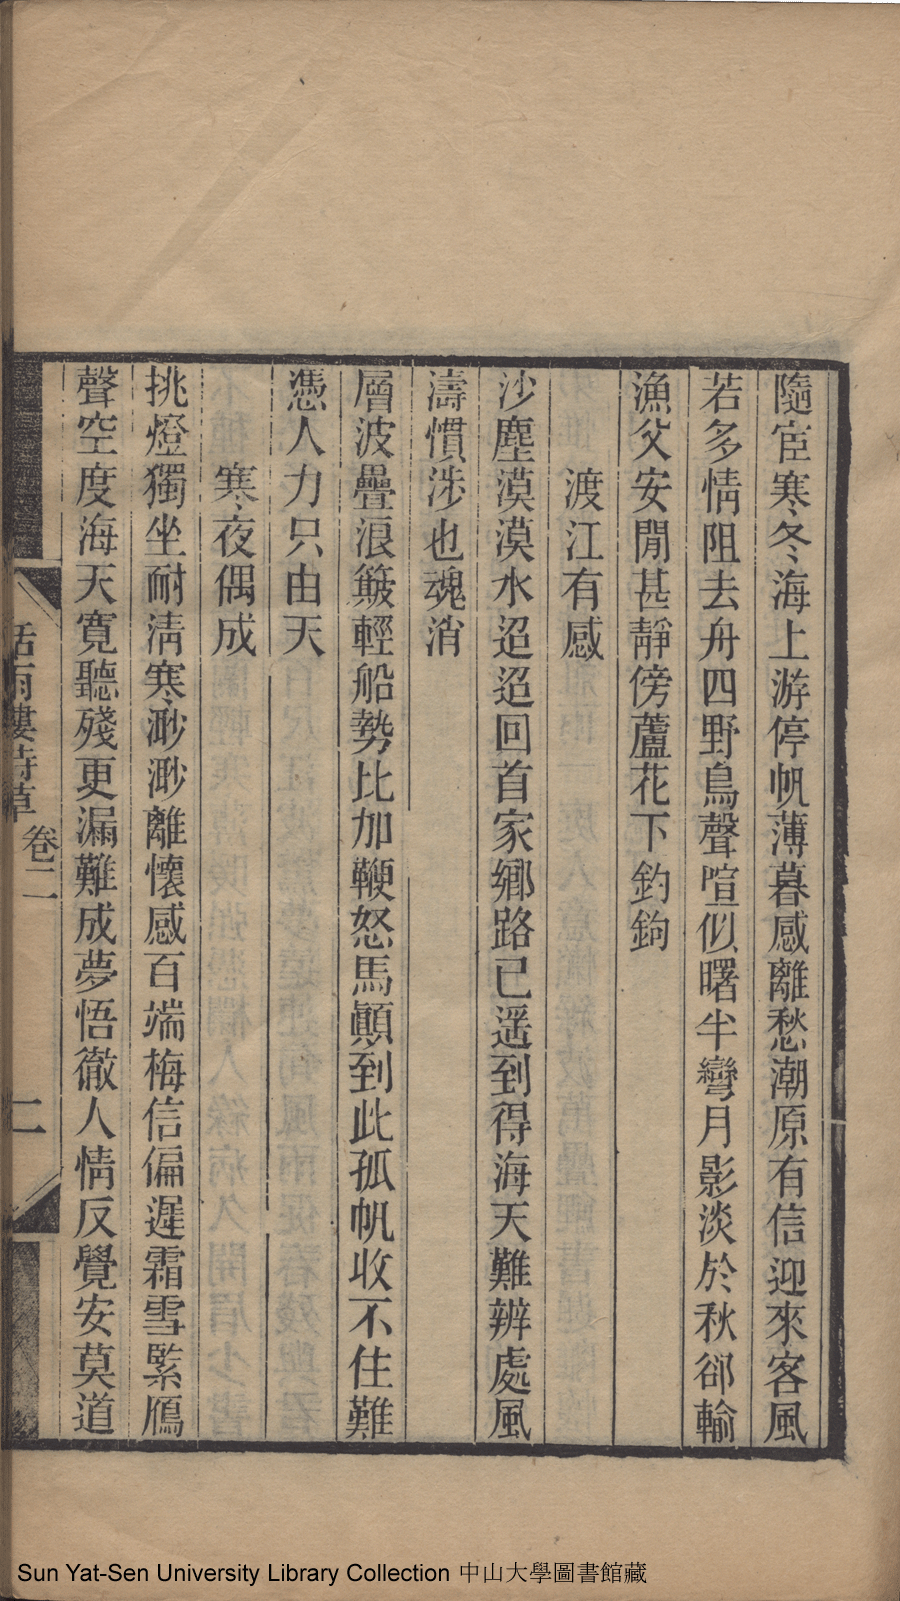 隨宦寒冬海上游停帆薄暮感離愁潮原有信迎來客風
若多情阻去舟四野鳥聲喧似曙半彎月影淡於秋郤輸
漁父安閒甚靜傍蘆花下釣鉤
渡江有感
沙塵漠漠水迢迢回首家鄉路已遥到得海天難辨處風
濤慣涉也魂消
層波疊浪簸輕船勢比加鞭怒馬顚到此孤帆收不住難
憑人力只由天
寒夜偶成
挑燈獨坐耐淸寒渺渺離懷感百端梅信偏遲霜雪緊鴈
聲空度海天寬聽殘更漏難成夢悟徹人情反覺安莫道
話雨樓詩草
卷二
二
Sun Yat-Sen University Library Collection 中山大學圖書館藏